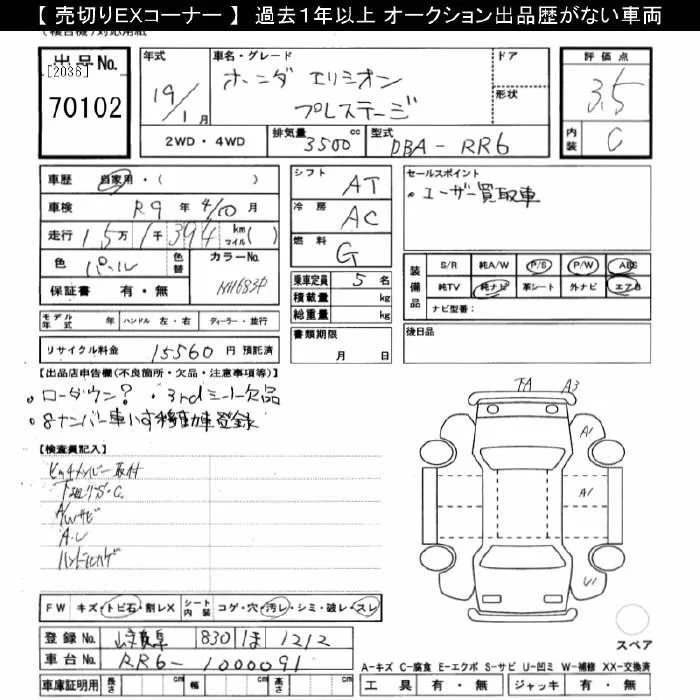 【 売切りEXコーナー 】 過去１年以上 オークション出品歴がない車両
出品No.
[2036]
70102
年式
19/1月
車名・グレード
ホーンダ エリシオン
プレステージ
ドア
形状
2WD・4WD
排気量 3500 cc
型式 DBA-RR6
評価点
3.5
内装 C
車歴 自家用・( )
車検 R9年 4/10月
走行 15万1千394 km マイル( )
色 パール 色替
カラーNo. NH683P
保証書 有・無
モデル年式 年 ハンドル 左・右 ディーラー・並行
リサイクル料金 15560 円 預託済
シフト AT
冷房 AC
燃料 G
乗車定員 5 名
積載量 kg
総重量 kg
書類期限
月 日
セールスポイント
・ユーザー買取車
装備品
S/R 純A/W P/S P/W ABS
純TV 純ナビ 革シート 外ナビ エアB
ナビ型番:
後日品
【出品店申告欄(不良箇所・欠品・注意事項等)】
・ローダウン? ・3rdシート欠品
・8ナンバー車いす移動車登録
【検査員記入】
下廻りS・C
A/Wサビ
A・U
ハンドルハゲ
TA A3
A1
A1
U1
FW キズ・トビ石・割レX シート内装 コゲ・穴・汚レ・シミ・破レ・スレ
登録No. 岐阜 830 ほ 1212
車台No. RR6-1000091
車庫証明用 長さ cm 幅 cm 高さ cm
スペア
A-キズ C-腐食 E-エクボ S-サビ U-凹ミ W-補修 XX-交換済
工具 有・無 ジャッキ 有・無